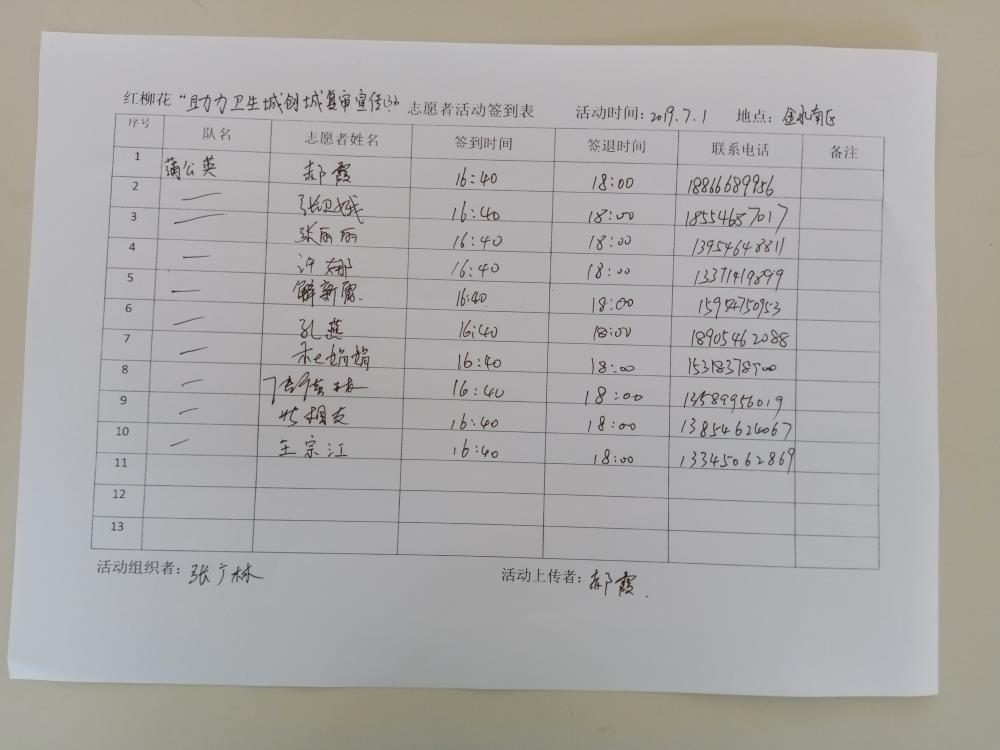 红柳花“助力卫生城创城复审宣传” 志愿者活动签到表 活动时间：2019.7.1 地点：金水南区
序号 队名 志愿者姓名 签到时间 签退时间 联系电话 备注
1 蒲公英 郝霞 16:40 18:00 18866689956
2 — 张卫娥 16:40 18:00 18554687017
3 — 张丽丽 16:40 18:00 13954648811
4 — 许娜 16:40 18:00 13371419899
5 — 解新房 16:40 18:00 15954750953
6 — 孔燕 16:40 18:00 18905462088
7 — 娟娟 16:40 18:00
8 — 16:40 18:00 13589956019
9 — 相友 16:40 18:00 13854624067
10 — 王宗江 16:40 18:00 13345062869
11
12
13
活动组织者：张广林 活动上传者：郝霞.